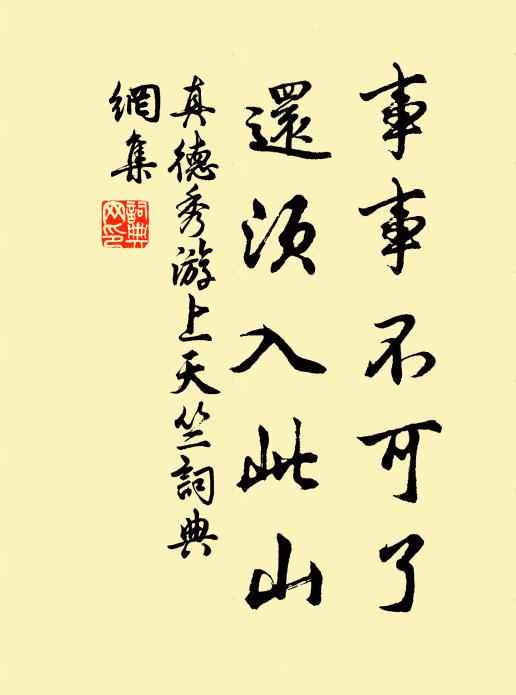 事事不可了
還須入此山
真德秀游上天竺詞典
網集
詞典
网印